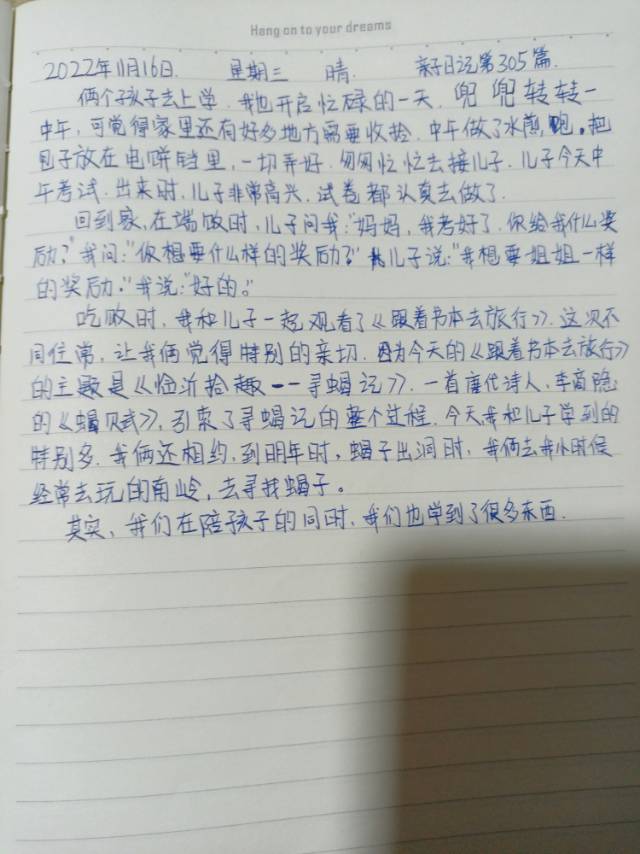 Hang on to your dreams
2022年11月16日. 星期三 晴. 亲子日记第305篇.
俩个孩子去上学.我也开启忙碌的一天.兜兜转转一
中午,可觉得家里还有好多地方需要收拾.中午做了水煎包.把
包子放在电饼铛里,一切弄好.匆匆忙忙去接儿子.儿子今天中
午考试.出来时,儿子非常高兴.试卷都认真去做了.
回到家,在端饭时,儿子问我:"妈妈,我考好了.你给我什么奖
励?"我问:"你想要什么样的奖励?"儿子说:"我想要姐姐一样
的奖励."我说:"好的。"
吃饭时,我和儿子一起观看了《跟着书本去旅行》.这次不
同往常,让我俩觉得特别的亲切.因为今天的《跟着书本去旅行》
的主题是《临沂拾趣一一寻蝎记》.一首唐代诗人,李商隐
的《蝎赋》,引来了寻蝎记的整个过程.今天我和儿子学到的
特别多.我俩还相约,到明年时,蝎子出洞时,我俩去我小时候
经常去玩的南岭,去寻找蝎子。
其实,我们在陪孩子的同时,我们也学到了很多东西.